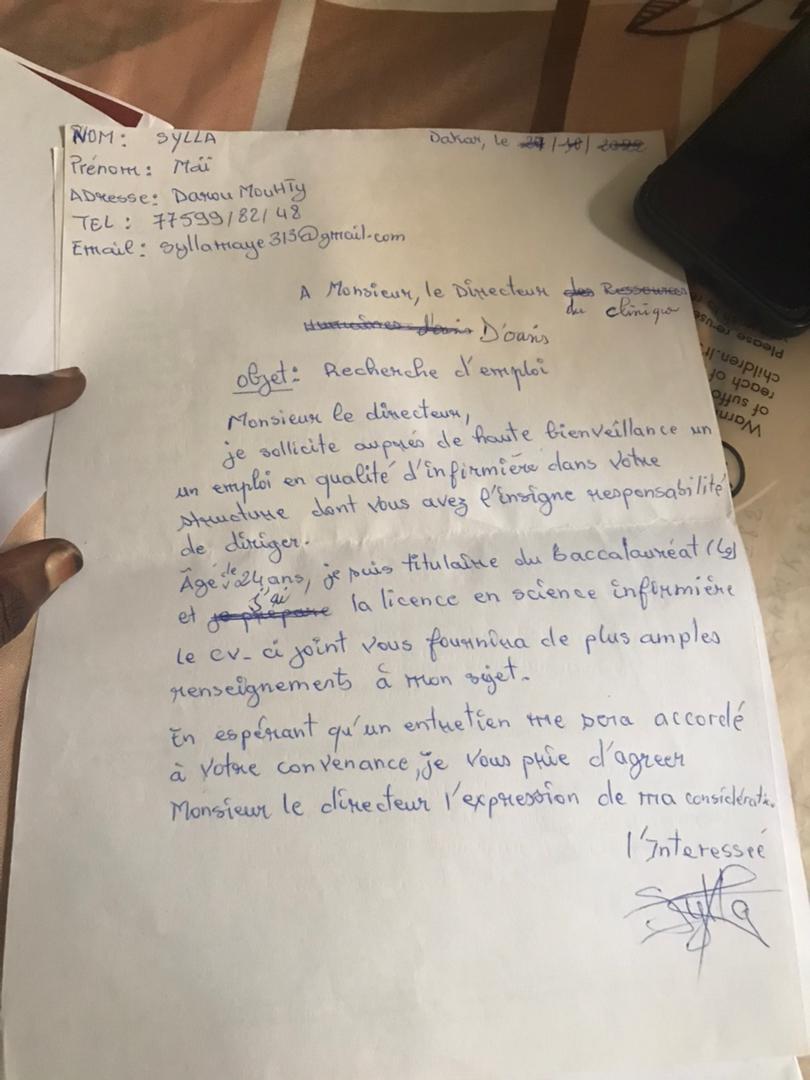 NOM: SYLLA
Prénom: Maï
ADresse: Darou MouHTy
TEL: 77599/82/48
Email: syllamaye313@gmail.com
Dakar, le 27/10/2022
A Monsieur, le Directeur des Ressources
du clinique
Humaines dans D'oaris
objet: Recherche d'emploi
Monsieur le directeur,
je sollicite auprés de haute bienveillance un
un emploi en qualité d'infirmière dans votre
structure dont vous avez l'insigne responsabilité
de diriger.
Âgé de 24 ans, je suis titulaire du Baccalauréat (L2)
j'ai
et je prépare la licence en science infirmière
le cv-ci joint vous fournira de plus amples
renseignements à mon sujet.
En espérant qu'un entretien me sera accordé
à votre convenance, je vous prie d'agreer
Monsieur le directeur l'expression de ma considérati.
l'Interesseé
Sylla
Warn
of suffo
reach of
children.
Please reuse